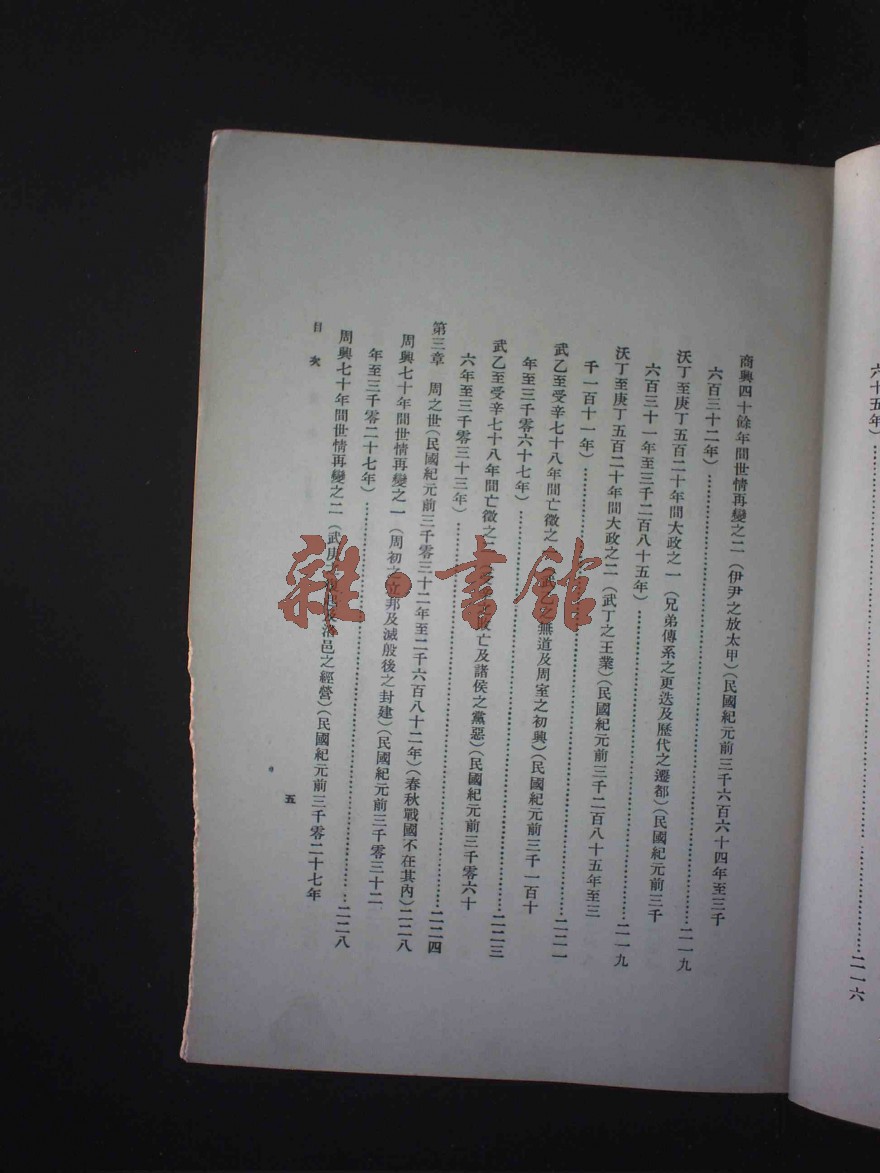 六十五年)……二一六
商興四十餘年間世情再變之二(伊尹之放太甲)(民國紀元前三千六百六十四年至三千
六百三十二年)……二一九
沃丁至庚丁五百二十年間大政之一(兄弟傳系之更迭及歷代之遷都)(民國紀元前三千
六百三十一年至三千二百八十五年)……二一九
沃丁至庚丁五百二十年間大政之二(武丁之王業)(民國紀元前三千二百八十五年至三
千一百十一年)……二二一
武乙至受辛七十八年間亡徵之 無道及周室之初興)(民國紀元前三千一百十
年至三千零六十七年)……二二三
武乙至受辛七十八年間亡徵之二 敗亡及諸侯之黨惡)(民國紀元前三千零六十
六年至三千零三十三年)……二二四
第三章 周之世(民國紀元前三千零三十二年至二千六百八十二年)(春秋戰國不在其內)二二八
周興七十年間世情再變之一(周初之立邦及滅殷後之封建)(民國紀元前三千零三十二
年至三千零二十七年)……二二八
周興七十年間世情再變之二(武庚 洛邑之經營)(民國紀元前三千零二十七年
目次
五
雜·書館